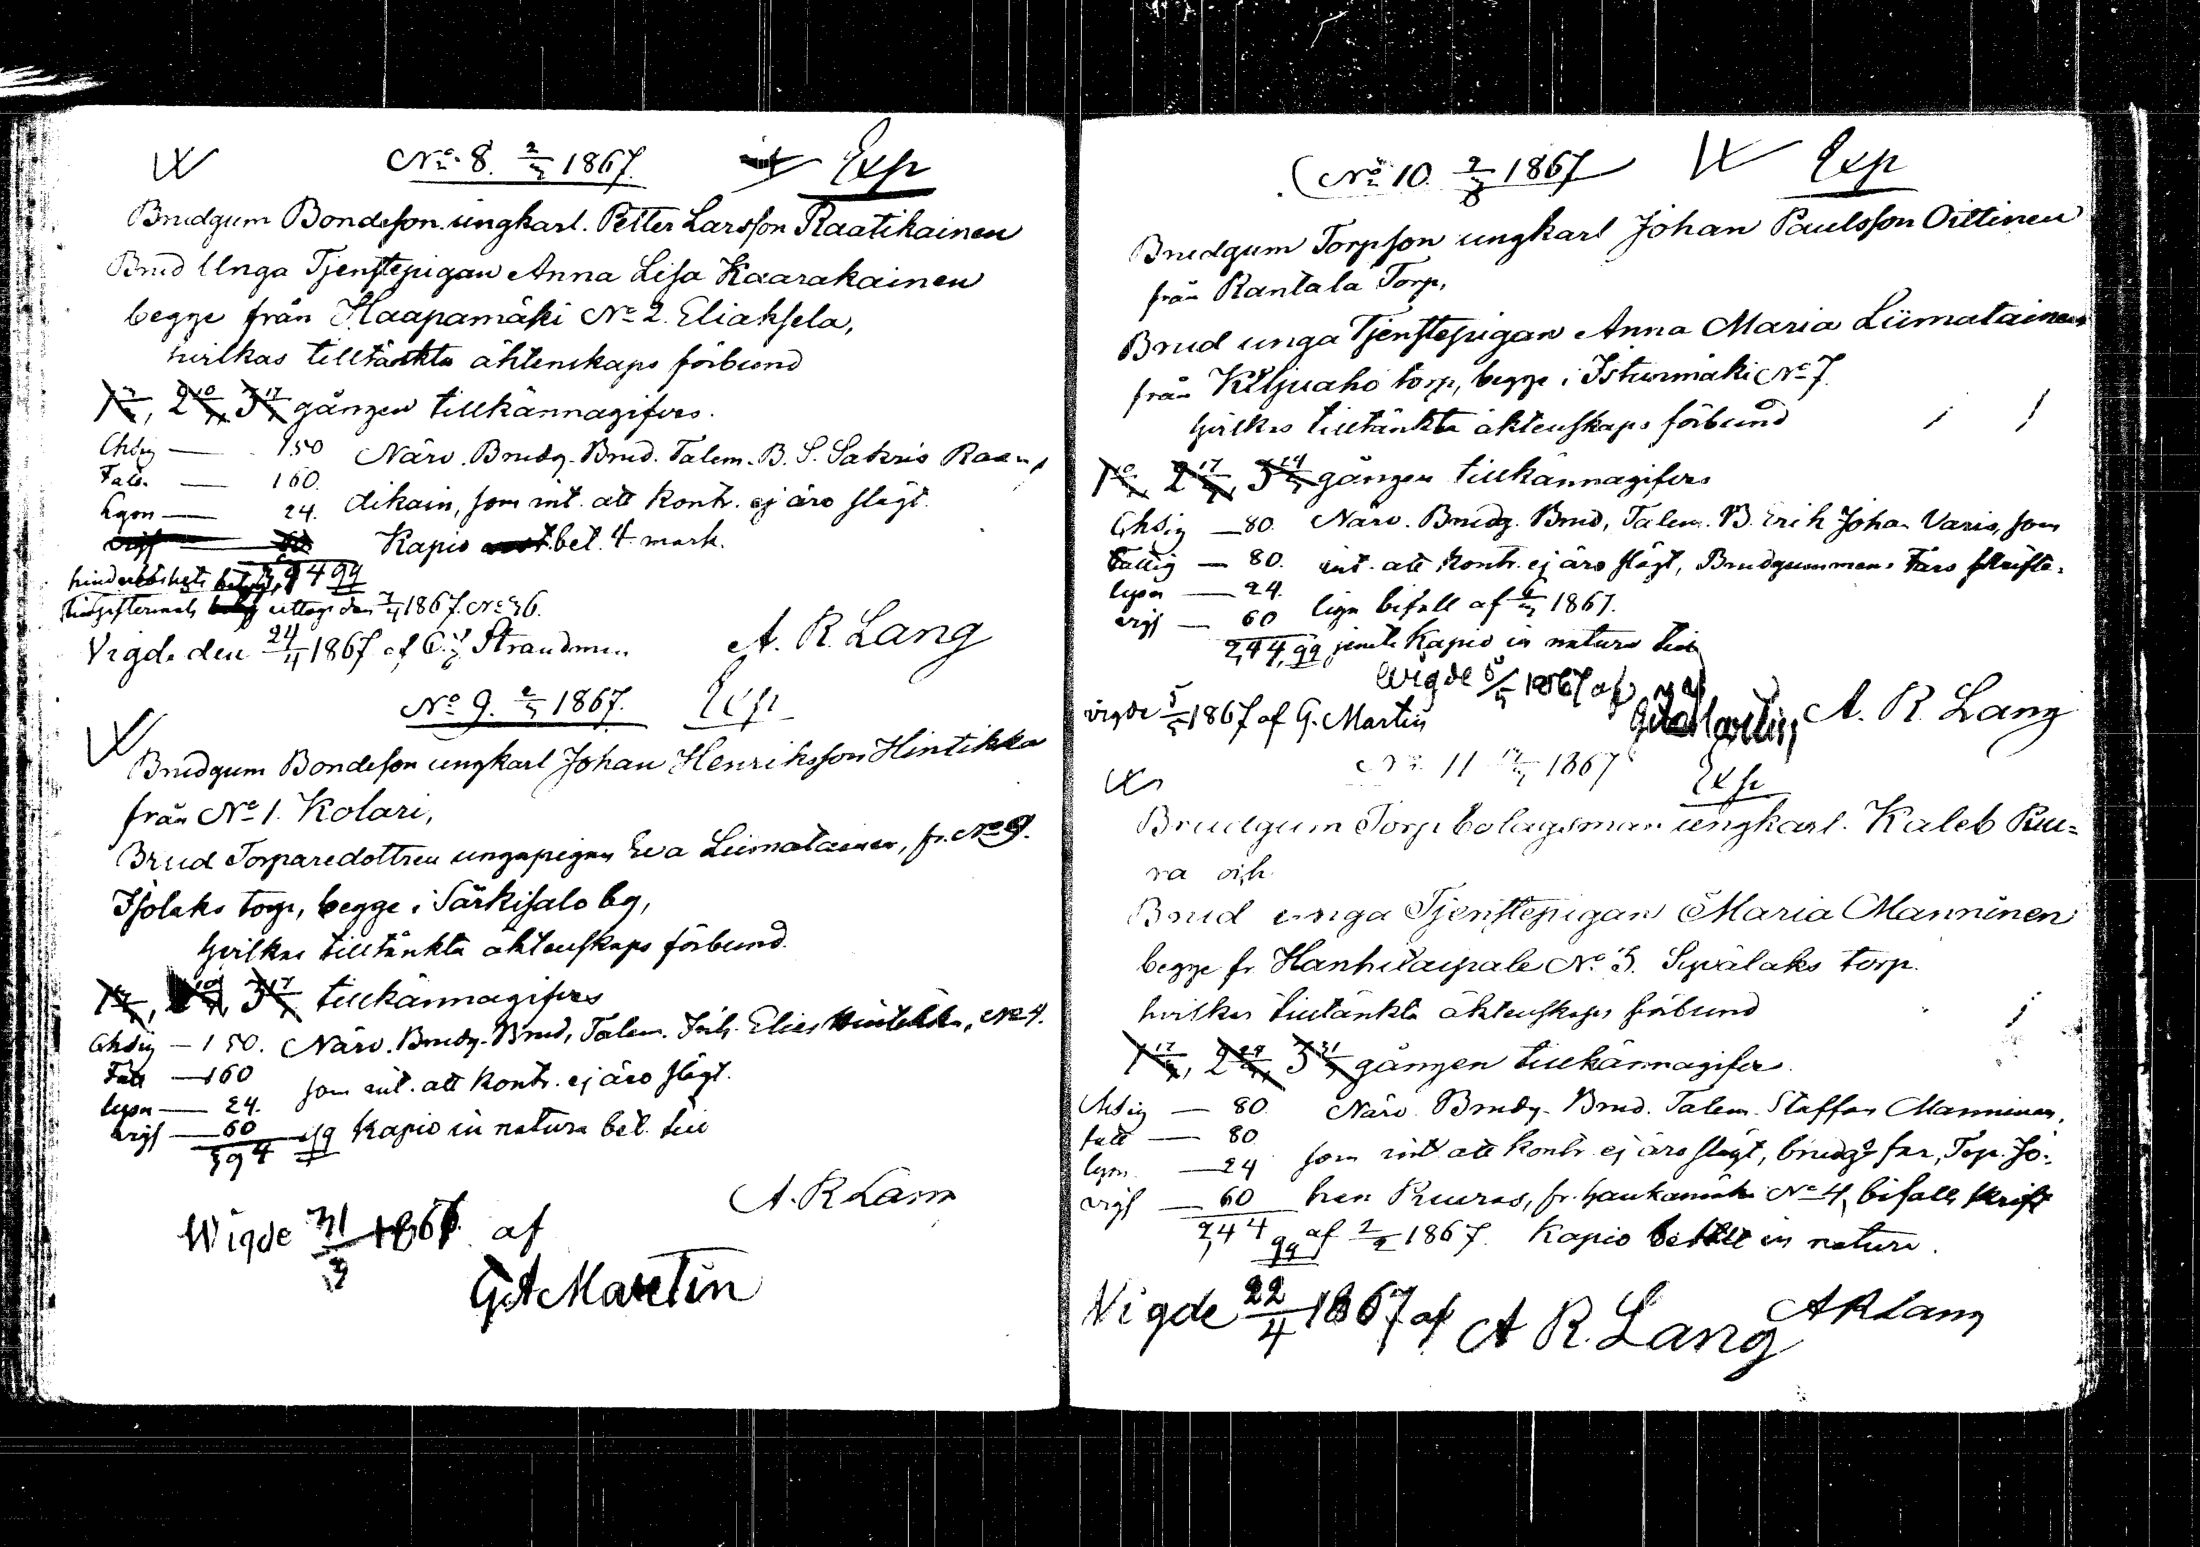 No 8. 2/3 1867. Exp
Brudgum Bondeson ungkarl. Petter Larsson Raatikainen
Brud Unga Tjenstepigan Anna Lisa Kaarakainen
begge från Haapamäki No 2. Eliaksela,
hvilkas tilltänkta äktenskaps förbund
1, 2 10/3, 3 17/3 gången tillkännagifves.
150 Närv. Brudg. Brud. Talem. B. S. Sakris Raa
160. dikain, som int. att kontr. ej äro slägt.
Lysn 24. Kapio bet. 4 mark.
uttags den 1867. No 36.
Vigde den 24/4 1867 af Strandman A. R. Lang
No 9. 2/3 1867. Exp
Brudgum Bondeson ungkarl Johan Henriksson Hintikka
från No 1. Kolari,
Brud Torparedottren unga pigan Eva Liimatainen, fr. No 9.
Isolaks torp, begge i Särkisalo by,
hvilkas tilltänkta äktenskaps förbund.
1, 2 10/3, 3 17/3 tillkännagifves
150. Närv. Brudg. Brud, Talem. Elias Hintikka, No 4.
Fatt 160 som int. att kontr. ej äro slägt.
lysn 24.
vigs 60 Kapio in natura bet. till
394
A. R Lang
Wigde 31/3 1867 af
G A Martin
No 10. 2/3 1867 Exp
Brudgum Torpson ungkarl Johan Paulsson Oittinen
från Rantala Torp,
Brud unga Tjenstepigan Anna Maria Liimatainen
från Kiljuaho torp, begge i Istunmäki No 7.
hvilkas tilltänkta äktenskaps förbund
1 10/3, 2 17/3, 3 24/3 gången tillkännagifves
80. Närv. Brudg. Brud, Talem. B. Erik Johan Varis, som
Fattig 80. int. att kontr. ej äro slägt, Brudgummens Fars skrifte-
lysn 24.
vigs 60 liga bifall af 1867.
244, 99 jemte Kapio in natura till
Wigde 5/5 1867 af
vigde 5/5 1867 af G. Martin G A Martin A. R. Lang
No 11 1867 Exp
Brudgum Torpbolagsman ungkarl. Kaleb Ruu-
ra och
Brud unga Tjenstepigan Maria Manninen
begge fr. Hanhitaipale No 3. Syvälaks torp.
hvilkas tilltänkta äktenskaps förbund
1 17/3, 2 24/3, 3 31/3 gången tillkännagifves.
80. Närv. Brudg. Brud. Talem. Staffan Manninen,
fatt 80.
lysn 24 som int att kontr. ej äro slägt, brudgs far, Torp. Jo-
vigs 60 han Ruuras, fr. Haukamäki No 4, bifall skrift
244 99 af 2/2 1867. Kapio in natura.
Vigde 22/4 1867 af A R Lang A R Lang